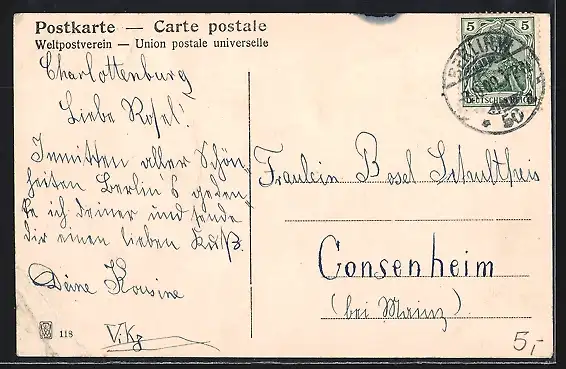 Postkarte — Carte postale
Weltpostverein — Union postale universelle
Charlottenburg
Liebe Rosel!
Inmitten aller Schön-
heiten Berlin's geden-
ke ich deiner und sende
dir einen lieben Kuß.
Deine Kousine
V.Kz
118
5 5
DEUTSCHES REICH
BERLIN W
50
Fräulein Rosel Schultheis
Gonsenheim
(bei Mainz)
5,-